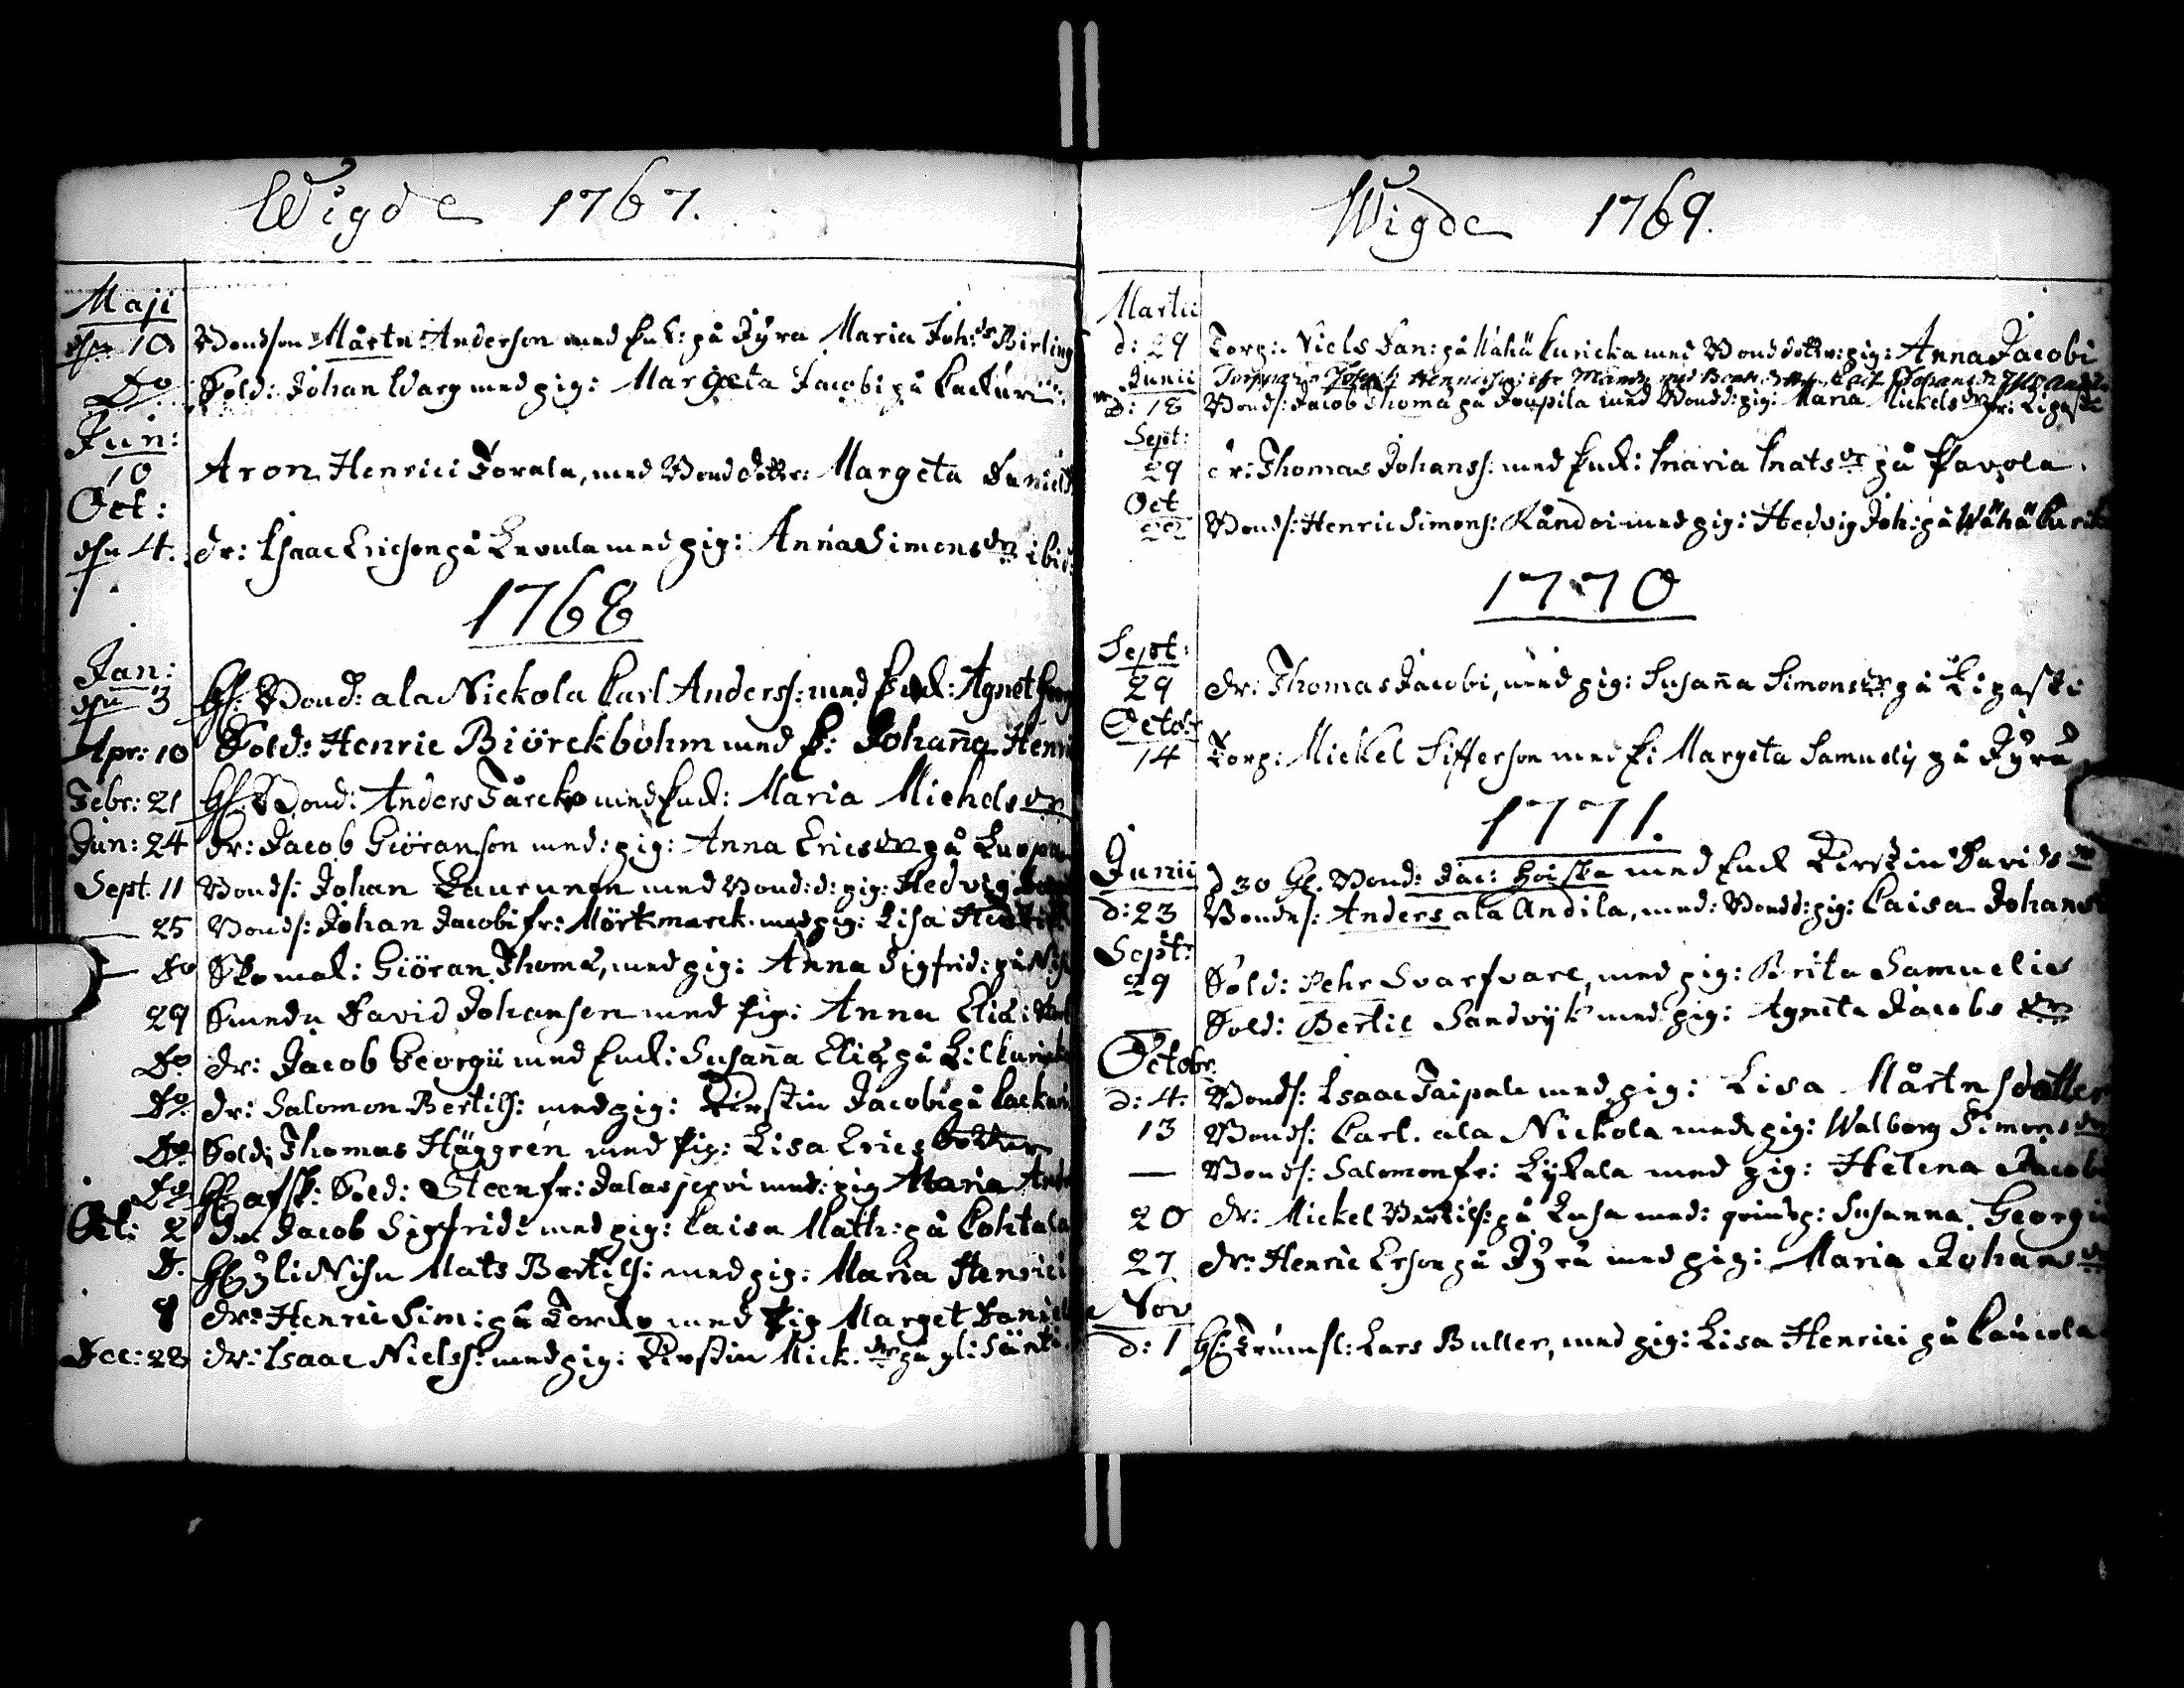 Wigde 1767.
Maji
d. 10 Bondson Mårtn Anderson med Enk: på Jyra Maria Joh:dr Birling
Do Sold: Johan Warg med pig: Margeta Jacobi på
Jun:
10 Aron Henrici Torala, med Bond dotter: Margeta Daniels
Oct:
den 4. dr: Isaac Ericson på Levula med pig: Anna Simons dr ibid:
1768
Jan:
den 3 Hs. Bond: ala Nickola Carl Anderss: med Enk: Agnet Georg
Apr: 10 Sold: Henric Biörckbohm med E: Johanna Henri
Febr: 21 Hs. Bond: Anders Tårcko med Enk: Maria Michels dr
Jun: 24 dr: Jacob Giöranson med: pig: Anna Erics dr på
Sept. 11 Bonds: Johan Laurunen med Bond: d: pig: Hedvig
— 25 Bonds: Johan Jacobi fr: Mörkmarck med pig: Lisa
— Do Skomak: Giöran Thomæ, med pig: Anna Sigfrid: på
29 Smedn David Johanson med pig: Anna Eliæ:
Do dr: Jacob Georgii med Enk: Susanna Eliæ på Lilkuricka
Do dr: Salomon Bertils: med pig: Kirstin Jacobi på
Do Sold: Thomas Häggrén med pig: Lisa Erics dotter
Do afsk: Sold: Steen fr: Salasjervi med: pig Maria And
Oct: 2 Dr Jacob Sigfridi med pig: Caisa Math: på Kohtala
D. yli Nisu Mats Bertils: med pig: Maria Henrici
9 dr: Henric Sim: på Torcko med pig Marget Daniel
Dec: 28 dr: Isaac Nielss: med pig: Kirstin Mick. dr på yli Sänti
Wigde 1769.
Martii
d: 29 Torp: Niels Dan: på Wähä Kuricka med Bond dotter: pig: Anna Jacobi
Junii
d: 18 Bonds: Jacob Thomæ på Joupila med Bondd: pig: Maria Mickels dr fr: Lipasti
Sept:
29 dr: Thomas Johanss: med Enk: Maria Mats dr på Pavola.
Oct
22 Bonds: Henric Simons: Råndoi med pig: Hedvig Joh: på Wähä Kurik
1770
Sept:
29 dr: Thomas Jacobi, med pig: Susanna Simons dr på Lipasti
Octob:
14 Torp: Mickel Sifferson med E: Margeta Samuelis på Jyrä
1771.
Junii d 30 Hs. Bond: Jac: Hoiska med Enk Kirstin Davids dr
d: 23 Bondes: Anders ala Andila, med: Bondd: pig: Caisa Johans
Sept:
29 Sold: Pehr Svarfvare, med pig: Brita Samuelis
— Sold: Bertil Sandvyk med pig: Agneta Jacobs dr
Octobr.
d: 4. Bonds: Isaac Taipale med pig: Lisa Mårtns dotter
13 Bonds: Carl. ala Nickola med pig: Walborg Simons dr
— Bonds: Salomon fr: Lykala med pig: Helena Jacobi
20 dr: Mickel Bertils: på Lusa med: qvinsp: Susanna Georgii
27 dr: Henric Erson på Jyrä med pig: Maria Johans dr
Nov
d: 1 Hs: Trumsl: Lars Buller, med pig: Lisa Henrici på Kaucola